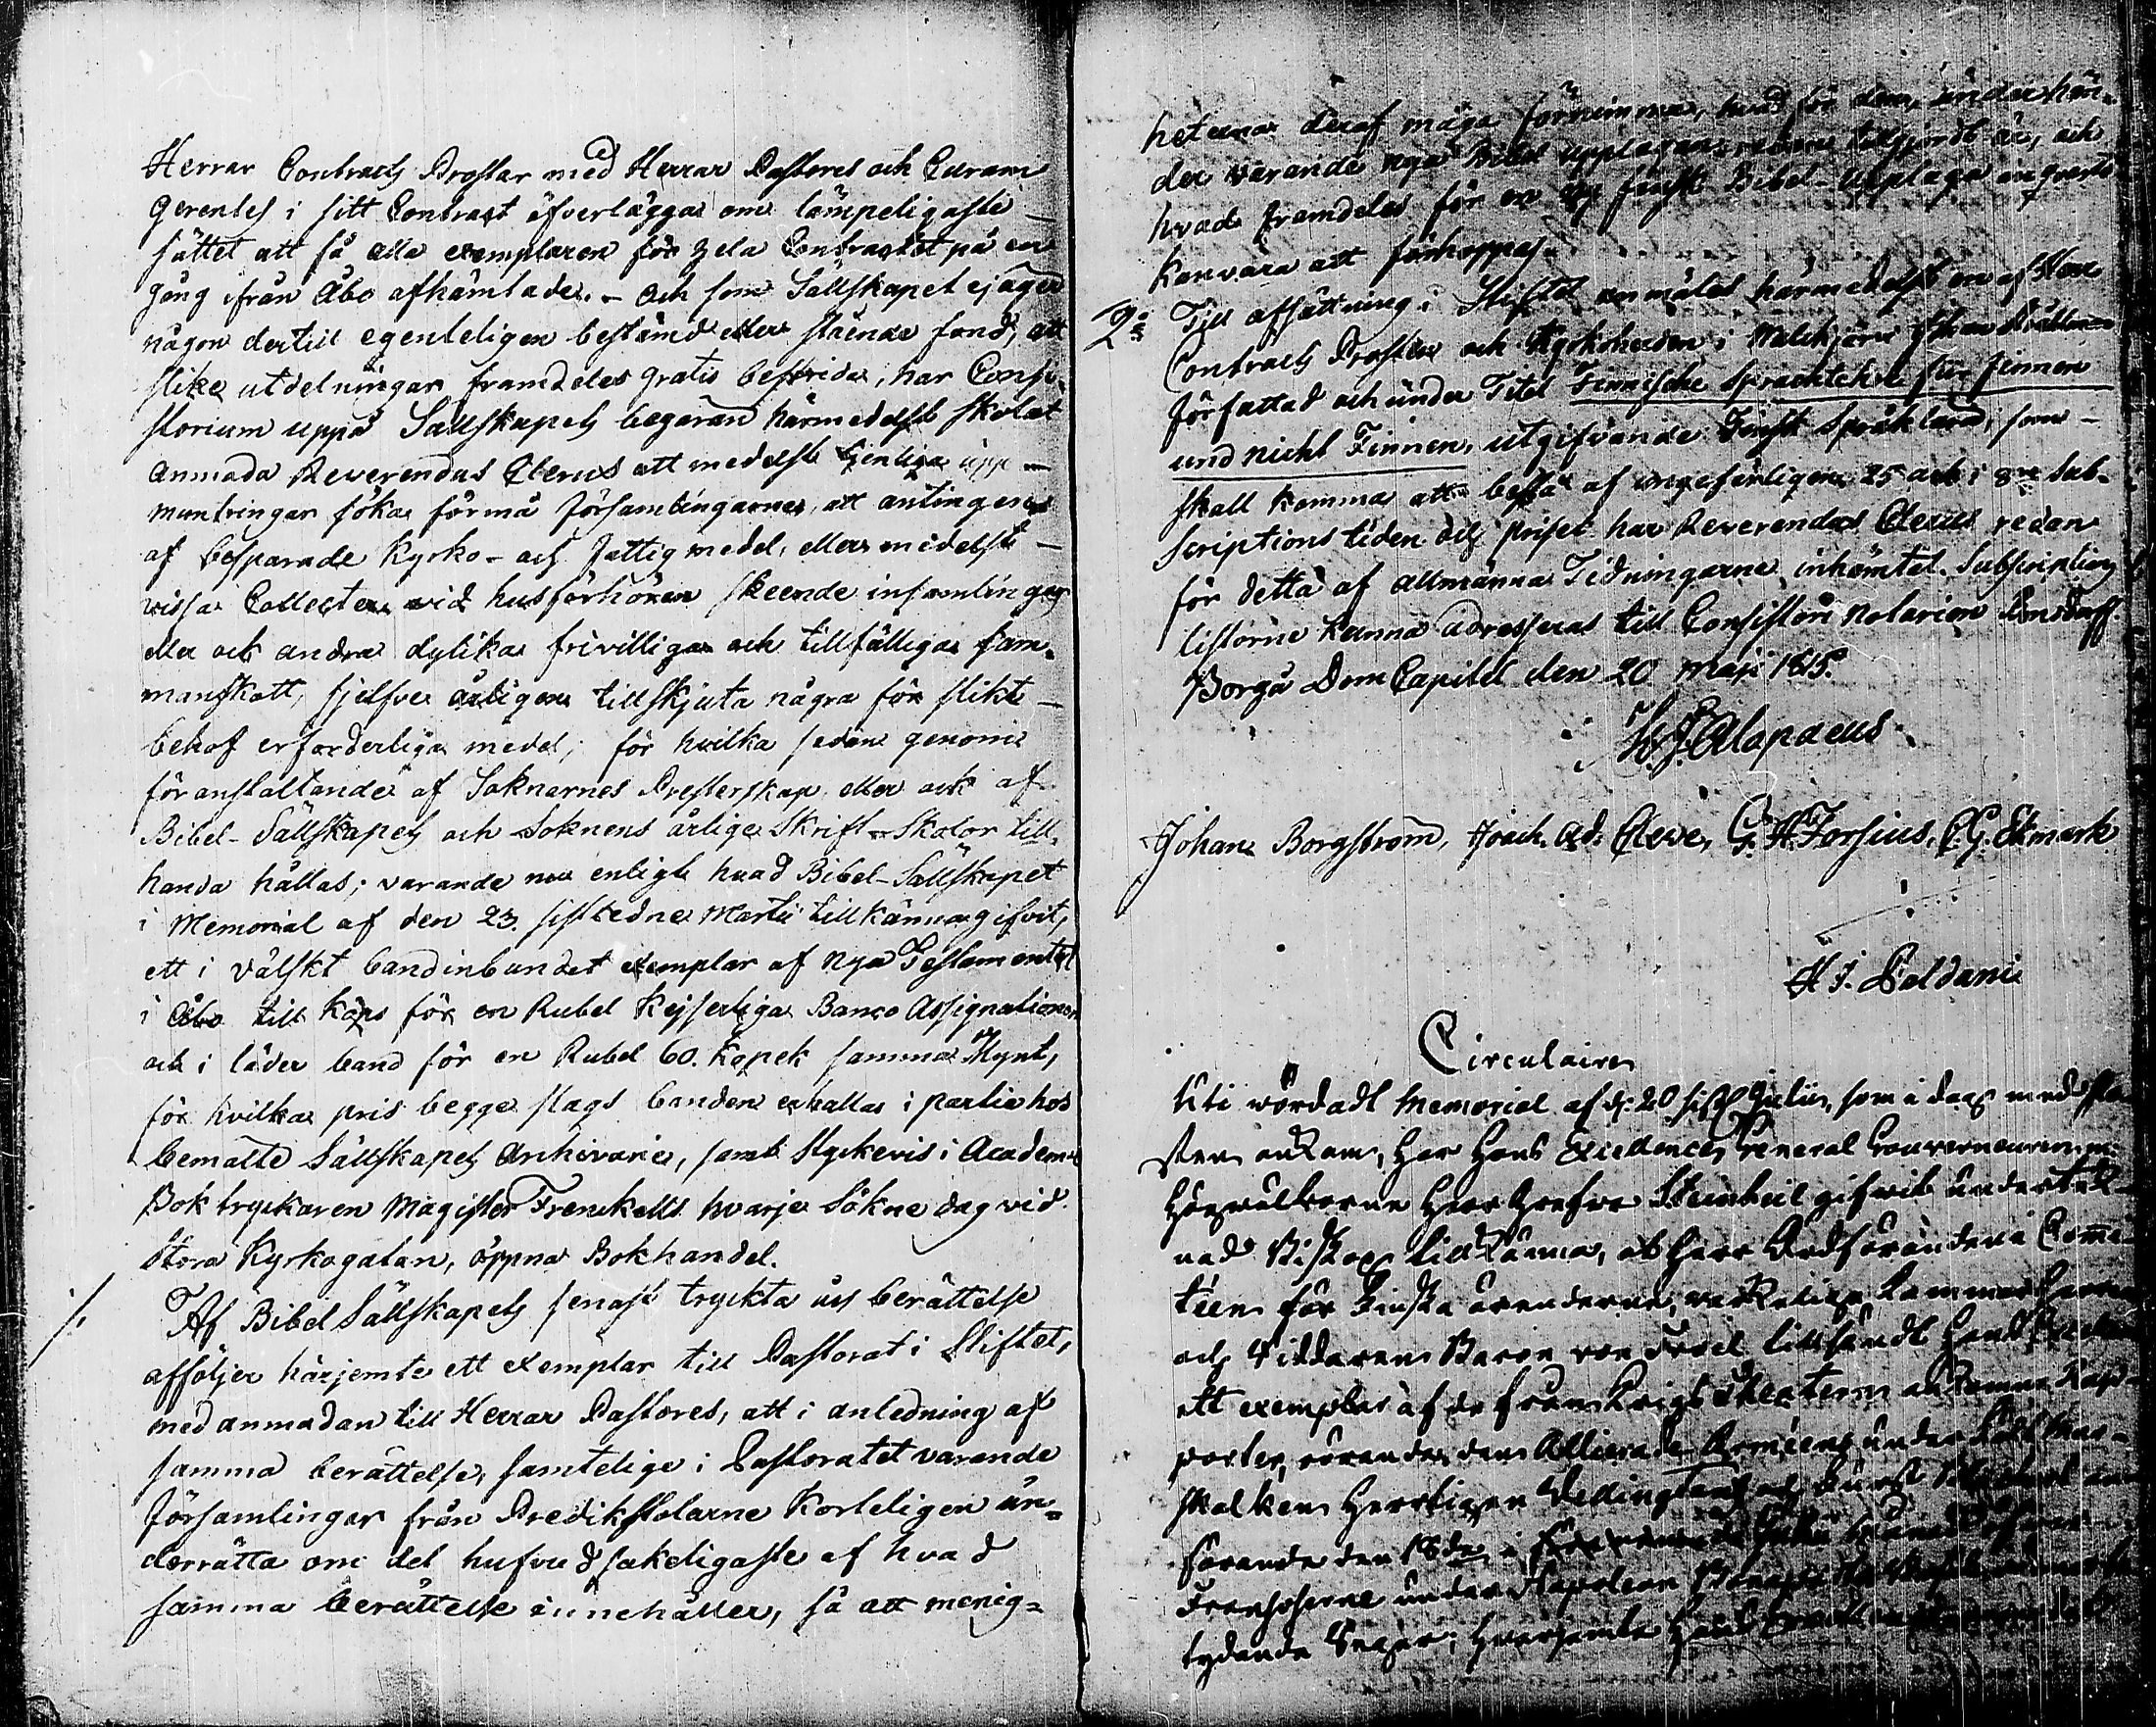 Herrar Contracts Prostar med Herrar Pastores och Curam
Gerentes i sitt Contract öfverlägga om lämpeligaste
sättet att få alla exemplaren för hela Contractet på en
gång ifrån Åbo afhämtade. – Och som Sällskapet ej äger
någon dertill egenteligen bestämd eller stående fond, att
slike utdelningar framdeles gratis bestrida, har Consi-
storium uppå Sällskapets begäran härmedelst skolat
anmoda Reverendus Clerus att medelst tjenliga upp-
muntringar söka förmå församlingarne, att antingen
af besparade Kyrko- och Fattigmedel, eller medelst
vissa Collecter vid husförhören skeende insamlingar
eller ock andra dylika frivilliga och tillfälliga sam-
manskott, sjelfve årligen tillskjuta några för slikt
behof erforderliga medel, för hvilka sedan genom
föranstaltande af Soknarnes Presterskap eller ock af
Bibel-Sällskapets och Soknens årliga Skrift-Skolor till-
handa hållas; varande nu enligt hvad Bibel-Sällskapet
i Memorial af den 23. sistledne Martii tillkännagifvit,
ett i välskt band inbundet exemplar af Nya Testamentet
i Åbo till köps för en Rubel Kejserliga Banco Assignationer
och i läder band för en Rubel 60. Kopek samma Mynt,
för hvilka pris begge slags banden erhållas i partie hos
bemälte Sällskapets Archivarie, samt Styckevis i Academie
Boktryckaren Magister Frenckells hvarje Söknedag vid
Stora Kyrkogatan, öppna Bokhandel.
Af Bibel Sällskapets senast tryckta års berättelse
afföljer härjemte ett exemplar till Pastorat i Stiftet,
med anmodan till Herrar Pastores, att i anledning af
samma berättelse, samtelige i Pastoratet varande
församlingar från Predikstolarne korteligen un-
derrätta om det hufvudsakeligaste af hvad
samma berättelse innehåller, så att menig-
heterna deraf måga förnimma, hvad för dem, under hän-
der varande nya Bibel upplagan redan tillgjordt är, och
hvad framdeles för en ny finsk Bibel-Upplaga in quarto
kan vara att förhoppas.
2:o Till afsättning i Stiftet anmäles härmedelst en af
Contracts Prosten och Kyrkoherden i Walckjärvi Johan Strahlman
författad och under Titel Finnische Sprachlehre für Finnen
und nicht Finnen, utgifvande Finsk Språklära, som
skall komma att bestå af ungefärligen 25 ark i 8:vo Sub-
scriptions tiden och priset har Reverendus Clerus redan
för detta af allmänna Tidningarne inhämtat. Subscriptions
listorne kunna adresseras till Consistorii Notarien
Borgå Dom Capitel den 20 Maji 1815.
M. J. Alopaeus
Johan Borgström, Joach. Ad. Cleve, G. H. Forsius, C. G. Ekmark
H J. Paldani
Circulaire
Uti vördadt Memorial af d: 20 sistl: Julii, som i dag med
sten ankom, har Hans Excellence General Gouverneuren
högvälborne Herr Grefve Steinheil gifvit underteck-
nad Biskop tillkänna, att Herr Ordföranden i Comi-
téen för Finska ärenderne, verkelige Kammarherren
och Riddaren Baron von Troil tillsändt Hans Excellence
ett exemplar af de från Krigs theatern ankomne Rap-
porter, rörande den Allierade Arméens under Fält Mar-
skalken Hertigen Wellington och Furst
förande den 18de
Fransoserne under Napoleon Bonaparte
tydande Seger; hvarjemte Hans Excellence